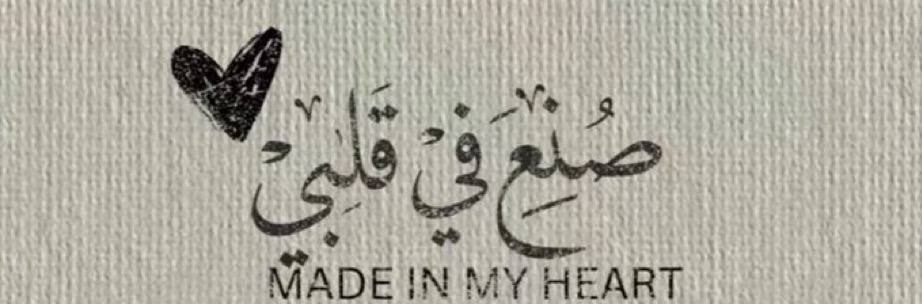 صُنِعَ فِيْ قَلْبِيْ
MADE IN MY HEART